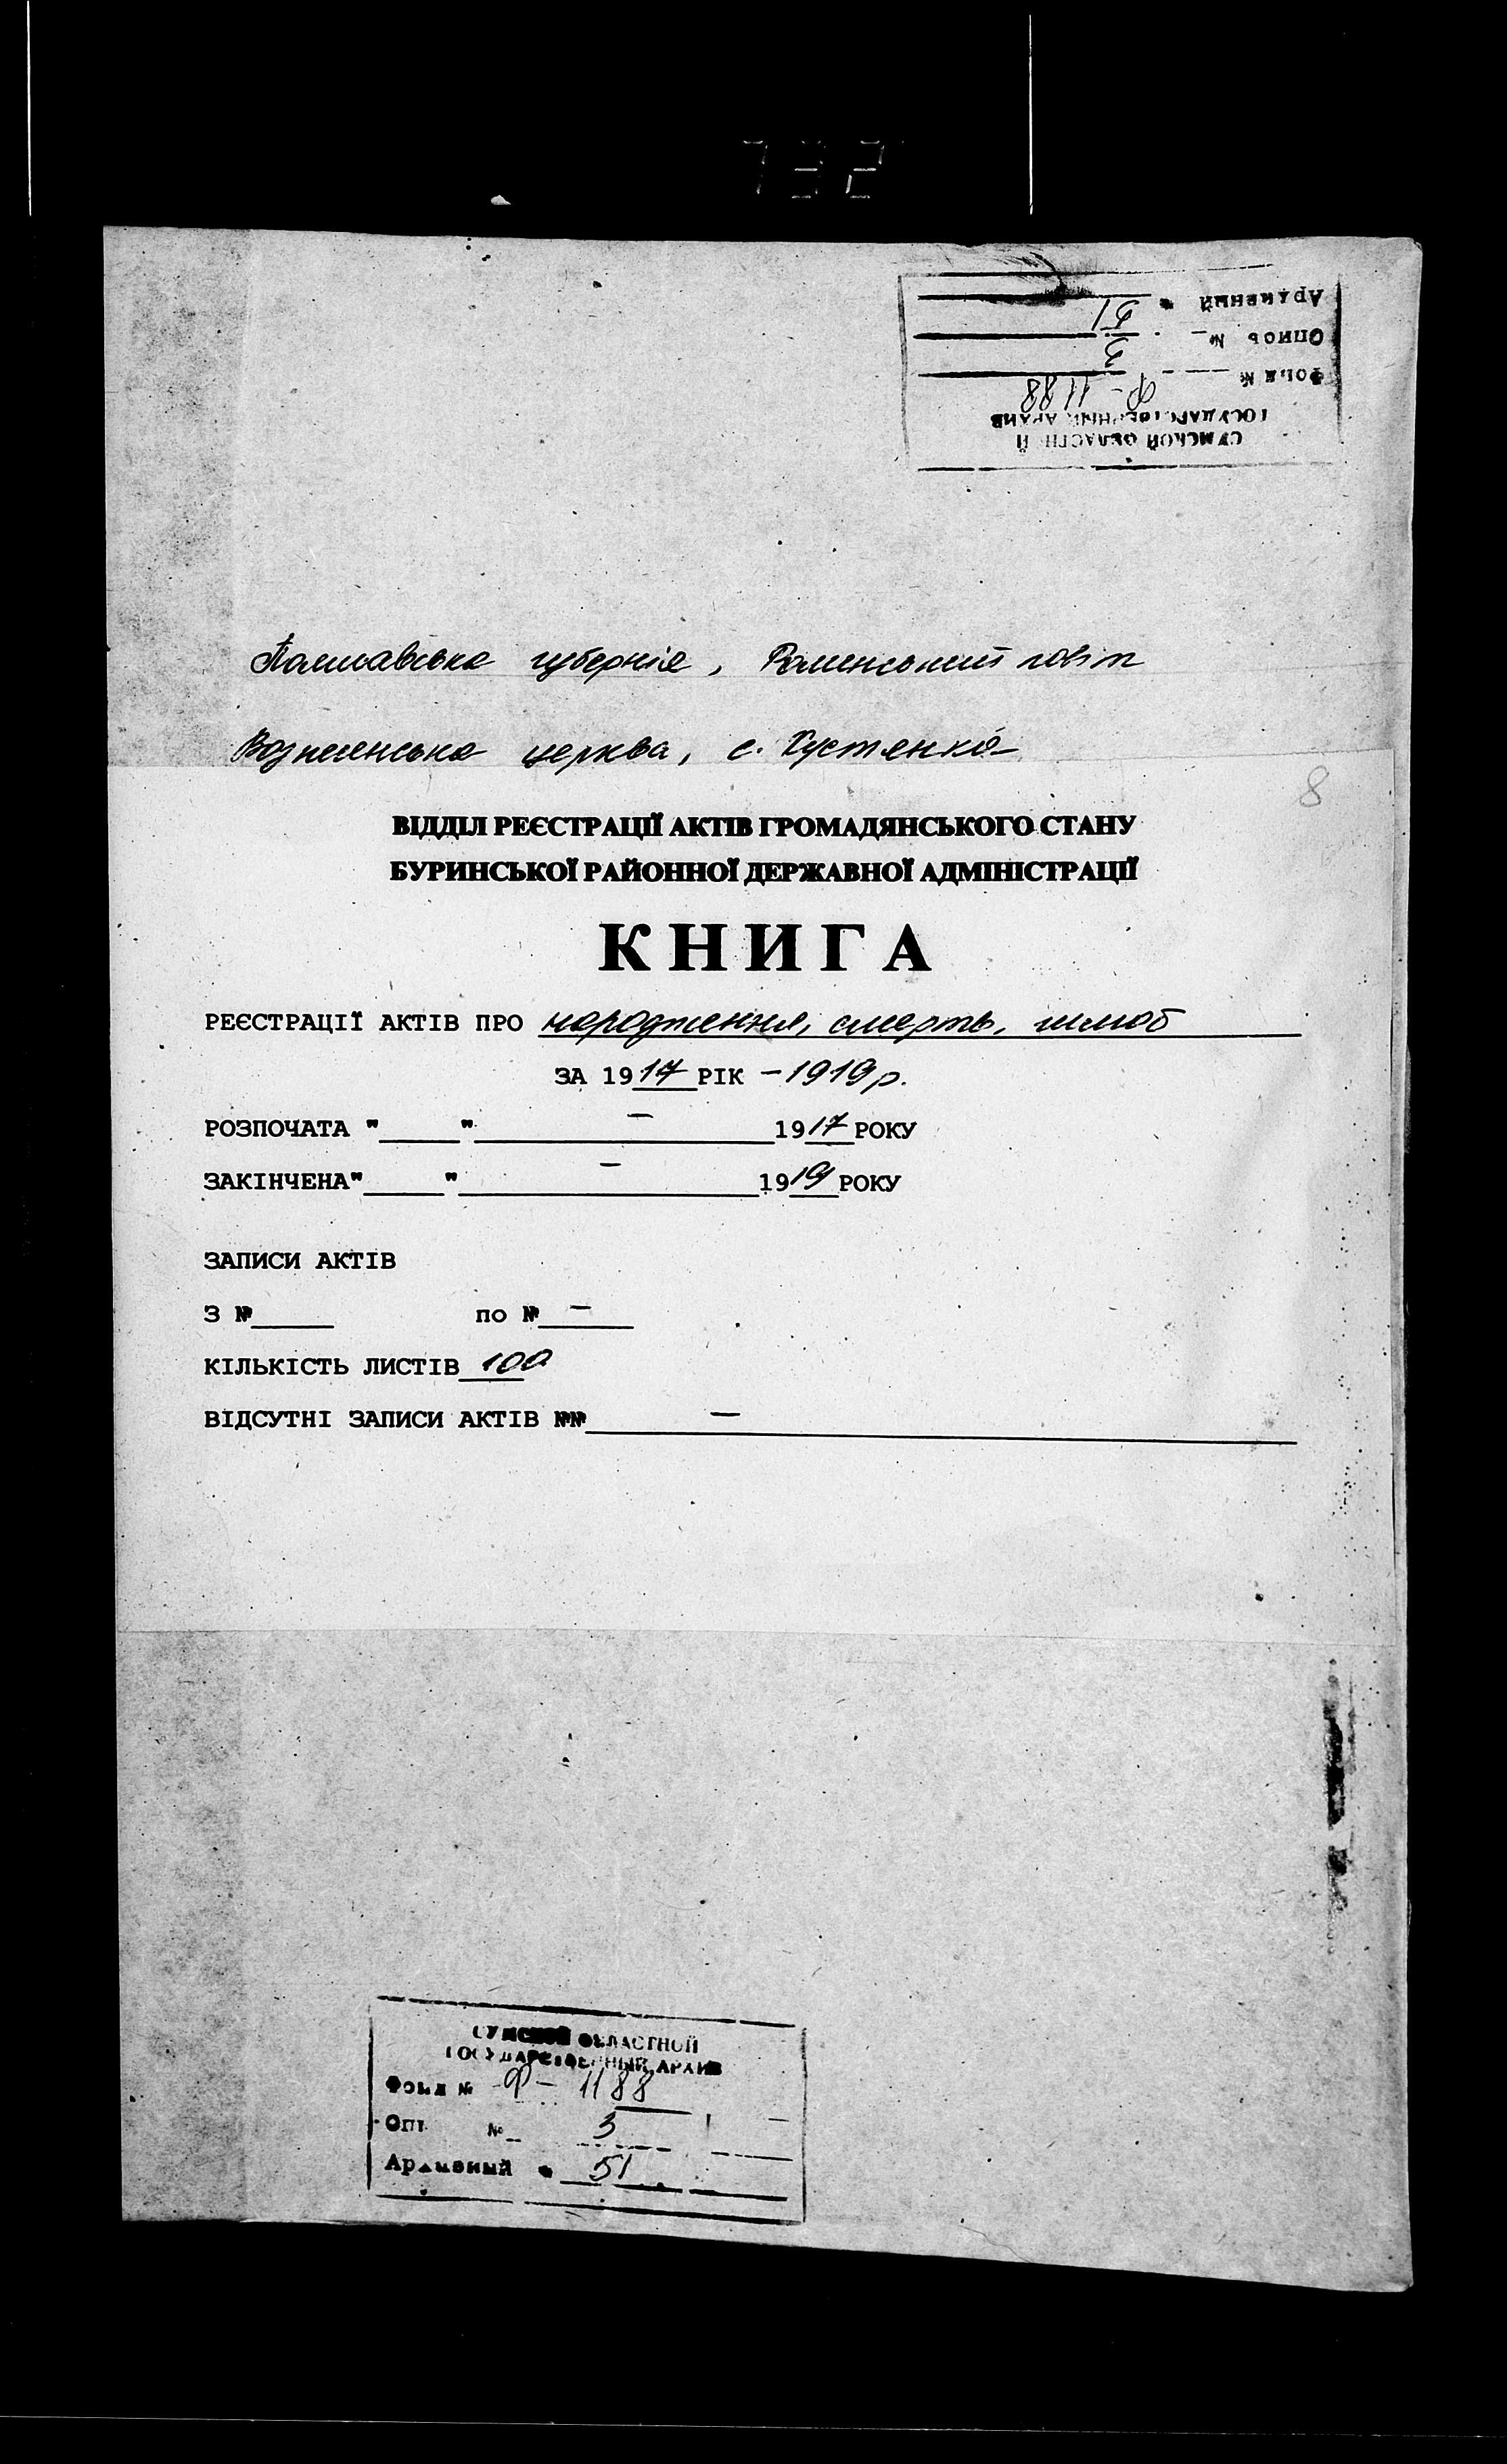 732
Архивный № 51
Опись № 3
Фонд № Ф-1188
ГОСУДАРСТВЕННЫЙ АРХИВ
СУМСКОЙ ОБЛАСТНОЙ
Полтавська губернія, Роменський повіт
Вознесенська церква, с. Хустянка
8
ВІДДІЛ РЕЄСТРАЦІЇ АКТІВ ГРОМАДЯНСЬКОГО СТАНУ
БУРИНСЬКОЇ РАЙОННОЇ ДЕРЖАВНОЇ АДМІНІСТРАЦІЇ
КНИГА
РЕЄСТРАЦІЇ АКТІВ ПРО народження, смерть, шлюб
ЗА 1917 РІК - 1919 р.
РОЗПОЧАТА "____" — 1917 РОКУ
ЗАКІНЧЕНА "____" — 1919 РОКУ
ЗАПИСИ АКТІВ
З №____ ПО № —
КІЛЬКІСТЬ ЛИСТІВ 100
ВІДСУТНІ ЗАПИСИ АКТІВ №№ —
СУМСКОЙ ОБЛАСТНОЙ
ГОСУДАРСТВЕННЫЙ АРХИВ
Фонд № Ф-1188
Оп. № 3
Архивный № 51